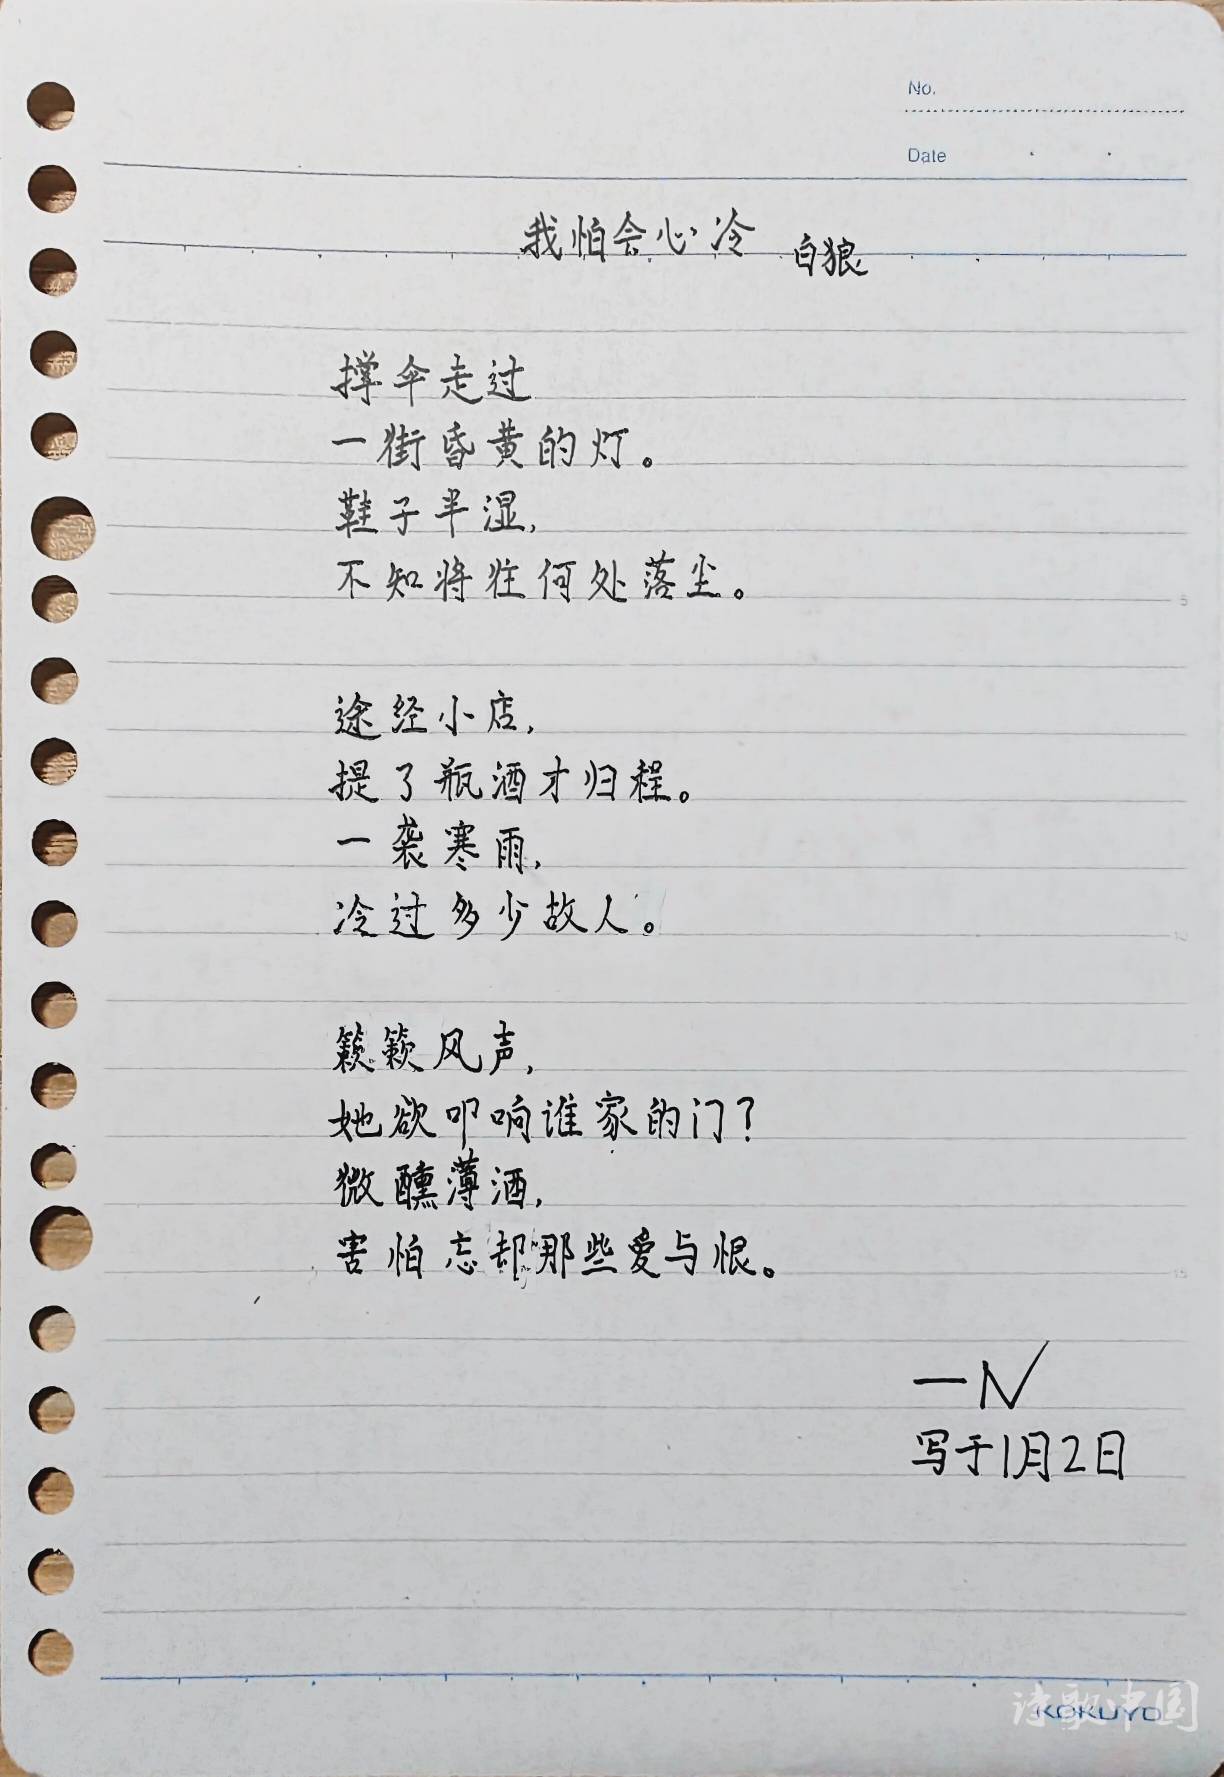 No.
Date
我怕会心冷 白狼
撑伞走过
一街昏黄的灯。
鞋子半湿,
不知将往何处落尘。
途经小店,
提了瓶酒才归程。
一袭寒雨,
冷过多少故人。
簌簌风声,
她欲叩响谁家的门?
微醺薄酒,
害怕忘却那些爱与恨。
一N
写于1月2日
5
10
15
诗歌中国
KOKUYO